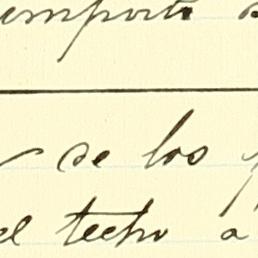 importe
de los
el techo a